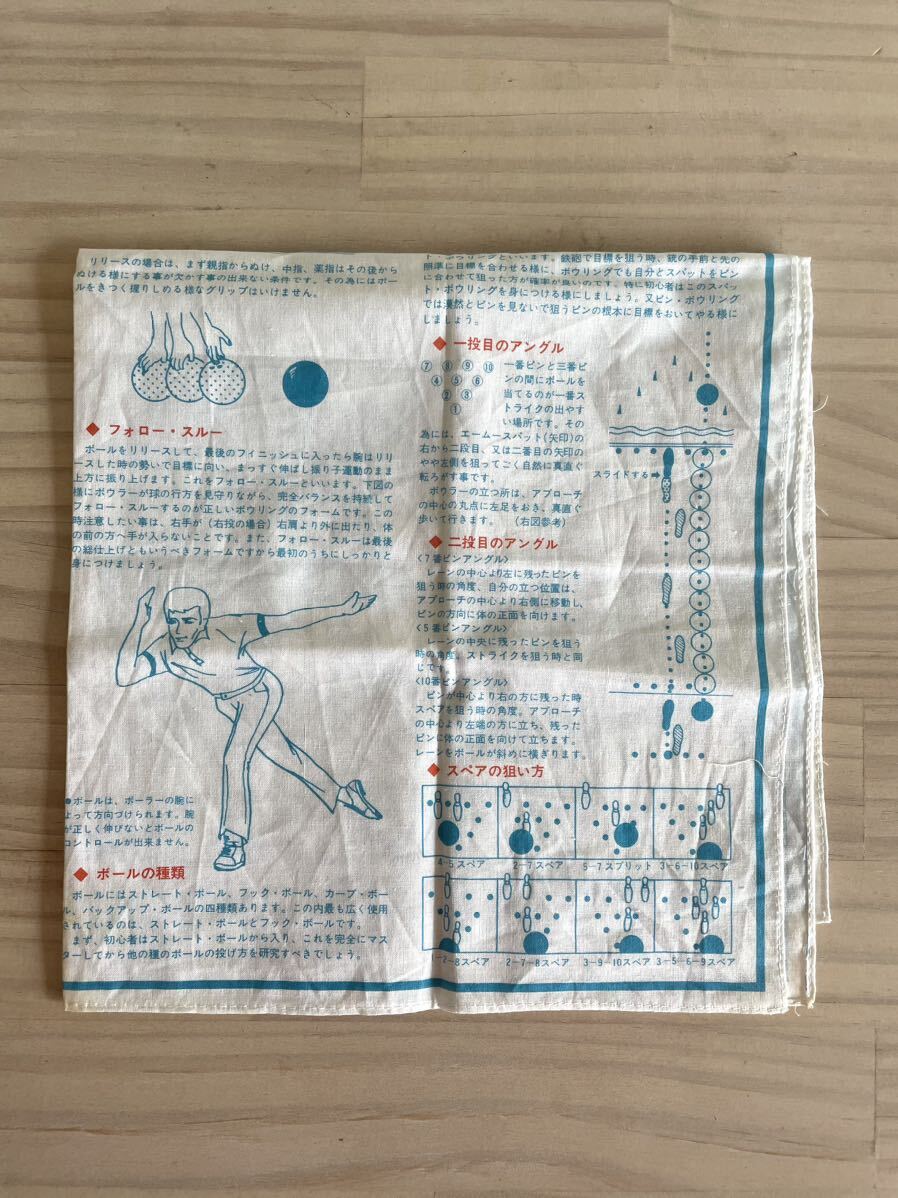 リリースの場合は、まず親指からぬけ、中指、薬指はその後から
ぬける様にする事が欠かす事の出来ない条件です。その為にはボー
ルをきつく握りしめる様なグリップはいけません。
◆ フォロー・スルー
ボールをリリースして、最後のフィニッシュに入ったら腕はリリ
ースした時の勢いで目標に向い、まっすぐ伸ばし振り子運動のまま
上方に振り上げます。これをフォロー・スルーといいます。下図の
様にボウラーが球の行方を見守りながら、完全バランスを持続して
フォロー・スルーするのが正しいボウリングのフォームです。この
時注意したい事は、右手が(右投の場合)右肩より外に出たり、体
の前の方へ手が入らないことです。また、フォロー・スルーは最後
の総仕上げともいうべきフォームですから最初のうちにしっかりと
身につけましょう。
●ボールは、ボーラーの腕に
よって方向づけられます。腕
が正しく伸びないとボールの
コントロールが出来ません。
◆ ボールの種類
ボールにはストレート・ボール、フック・ボール、カーブ・ボー
ル、バックアップ・ボールの四種類あります。この内最も広く使用
されているのは、ストレート・ボールとフック・ボールです。
まず、初心者はストレート・ボールから入り、これを完全にマス
ターしてから他の種のボールの投げ方を研究すべきでしょう。
ト・ボウリングといいます。鉄砲で目標を狙う時、銃の手前と先の
照準に目標を合わせる様に、ボウリングでも自分とスパットをピン
に合わせて狙った方が確率が良いのです。特に初心者はこのスパッ
ト・ボウリングを身につける様にしましょう。又ピン・ボウリング
では漫然とピンを見ないで狙うピンの根本に目標をおいてやる様に
しましょう。
◆ 一投目のアングル
⑦ ⑧ ⑨ ⑩
④ ⑤ ⑥
② ③
①
一番ピンと三番ピ
ンの間にボールを
当てるのが一番ス
トライクの出やす
い場所です。その
為には、エームースパット(矢印)の
右から二段目、又は二番目の矢印の
やや左側を狙ってごく自然に真直ぐ
転ろがす事です。
ボウラーの立つ所は、アプローチ
の中心の丸点に左足をおき、真直ぐ
歩いて行きます。 (右図参考)
スライドする→
◆ 二投目のアングル
〈7番ピンアングル〉
レーンの中心より左に残ったピンを
狙う時の角度、自分の立つ位置は、
アプローチの中心より右側に移動し、
ピンの方向に体の正面を向けます。
〈5番ピンアングル〉
レーンの中央に残ったピンを狙う
時の角度。ストライクを狙う時と同
じです。
〈10番ピンアングル〉
ピンが中心より右の方に残った時
スペアを狙う時の角度。アプローチ
の中心より左端の方に立ち、残った
ピンに体の正面を向けて立ちます。
レーンをボールが斜めに横ぎります。
◆ スペアの狙い方
4-5スペア 2-7スペア 5-7スプリット 3-6-10スペア
-2-8スペア 2-7-8スペア 3-9-10スペア 3-5-6-9スペア